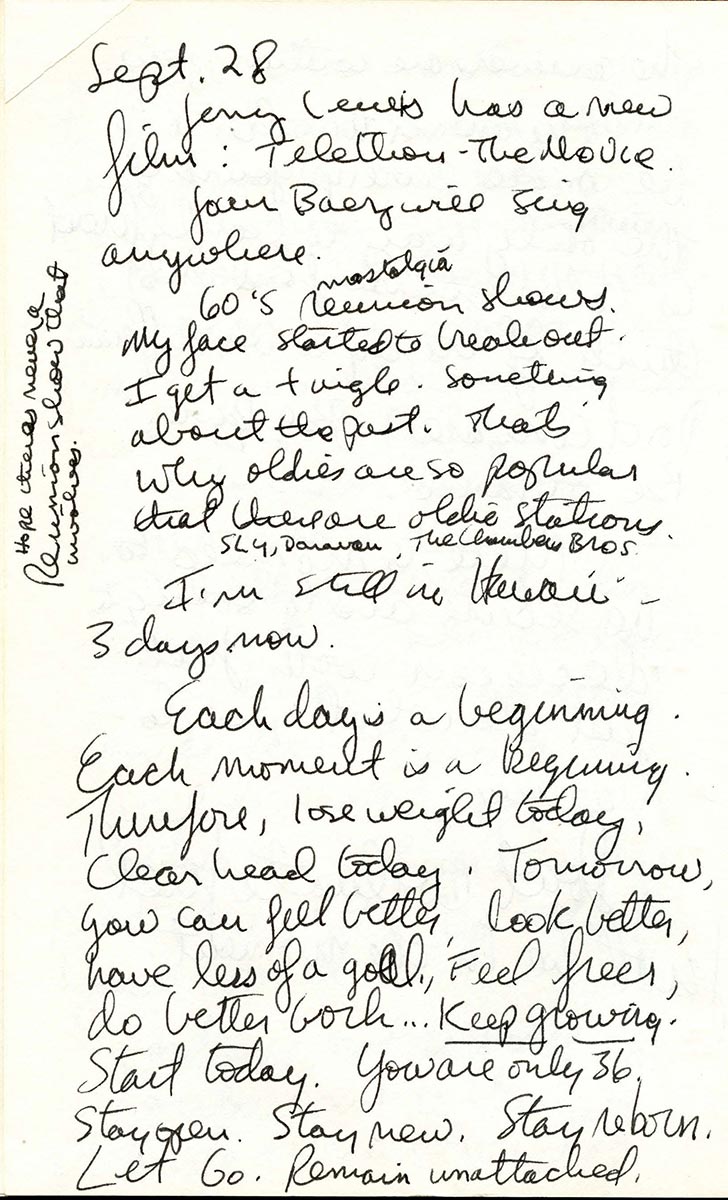 Sept. 28
Jerry Lewis has a new
film: Telethon - The Movie.
Joan Baez will sing
anywhere.
nostalgia
60's reunion shows.
My face started to break out.
I get a tingle. Something
about the past. That's
why oldies are so popular
that there are oldie stations.
Sly, Donavan, The Chambers Bros.
Hope theres never a
Reunion show that
involves.
I'm still in Hawaii -
3 days now.
Each day is a beginning.
Each moment is a beginning.
Therefore, lose weight today,
Clear head today. Tomorrow,
you can feel better, look better,
have less of a goal, Feel freer,
do better work... Keep growing.
Start today. You are only 36.
Stay open. Stay new. Stay reborn.
Let Go. Remain unattached.